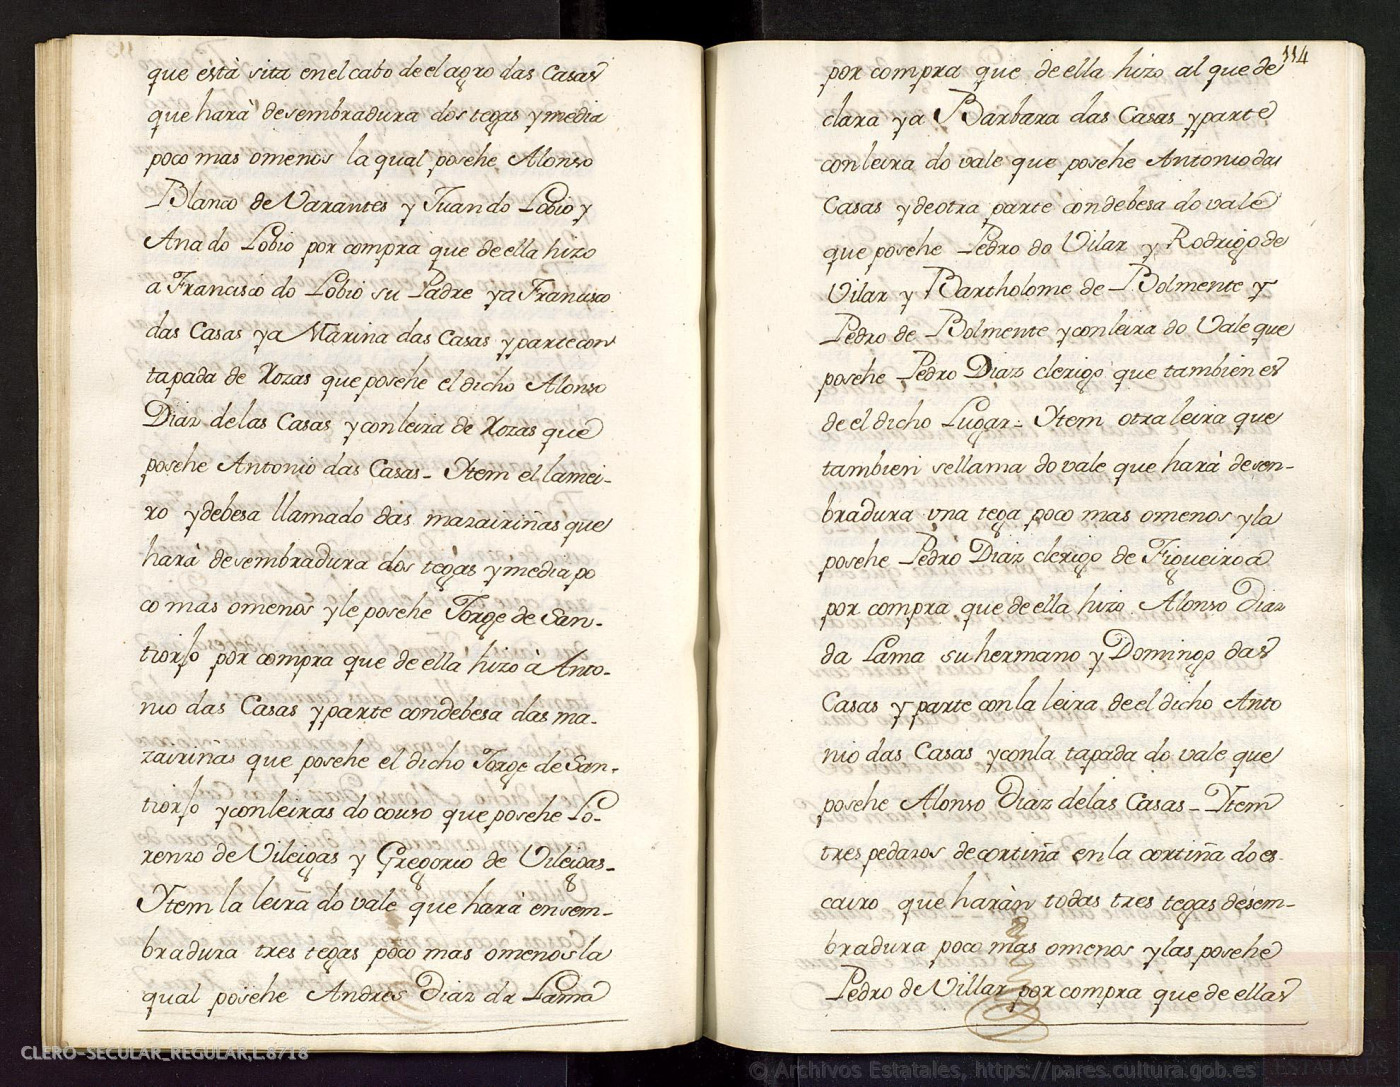 que està sita enel cabo de el agro das Casas
que harà desembradura dos tegas y media
poco mas omenos la qual posehe Alonso
Blanco de Varantes y Juan do Lobio y
Ana do Lobio por compra que de ella hizo
a Francisco do Lobio su Padre ya Francisco
das Casas ya Marina das Casas y parte con
tapada de Xozas que posehe el dicho Alonso
Diaz de las Casas y con leira de Xozas que
posehe Antonio das Casas - Ytem el lamei-
ro y debesa llamado das mazairiñas que
harà desembradura dos tegas y media po
co mas omenos y le posehe Jorge de San-
tiorjo por compra que de ella hizo à Anto-
nio das Casas y parte con debesa das ma-
zairiñas que posehe el dicho Jorge de San-
tiorjo y con leiras do couso que posehe Lo-
renzo de Vileigas y Gregorio de Vileigas -
Ytem la leira do vale que harà en sem-
bradura tres tegas poco mas omenos la
qual posehe Andres Diaz da Lama
114
por compra que de ella hizo al que de
clara ya Barbara das Casas y parte
con leira do vale que posehe Antonio das
Casas y de otra parte con debesa do vale
que posehe Pedro do Vilar y Rodrigo de
Vilar y Bartholome de Bolmente y
Pedro de Bolmente y con leira do Vale que
posehe Pedro Diaz clerigo que tambien es
de el dicho Lugar - Ytem otra leira que
tambien se llama do vale que harà de sen-
bradura vna tega poco mas omenos y la
posehe Pedro Diaz clerigo de Figueiroa
por compra que de ella hizo Alonso Diaz
da Lama su hermano y Domingo das
Casas y parte con la leira de el dicho Anto
nio das Casas y con la tapada do vale que
posehe Alonso Diaz de las Casas - Ytem
tres pedazos de cortiña en la cortiña do es-
cairo que haràn todas tres tegas de sem-
bradura poco mas omenos y las posehe
Pedro de Villar por compra que de ellas
CLERO-SECULAR_REGULAR,L.8718
© Archivos Estatales, https://pares.cultura.gob.es
ARCHIVOS
ESTATALES